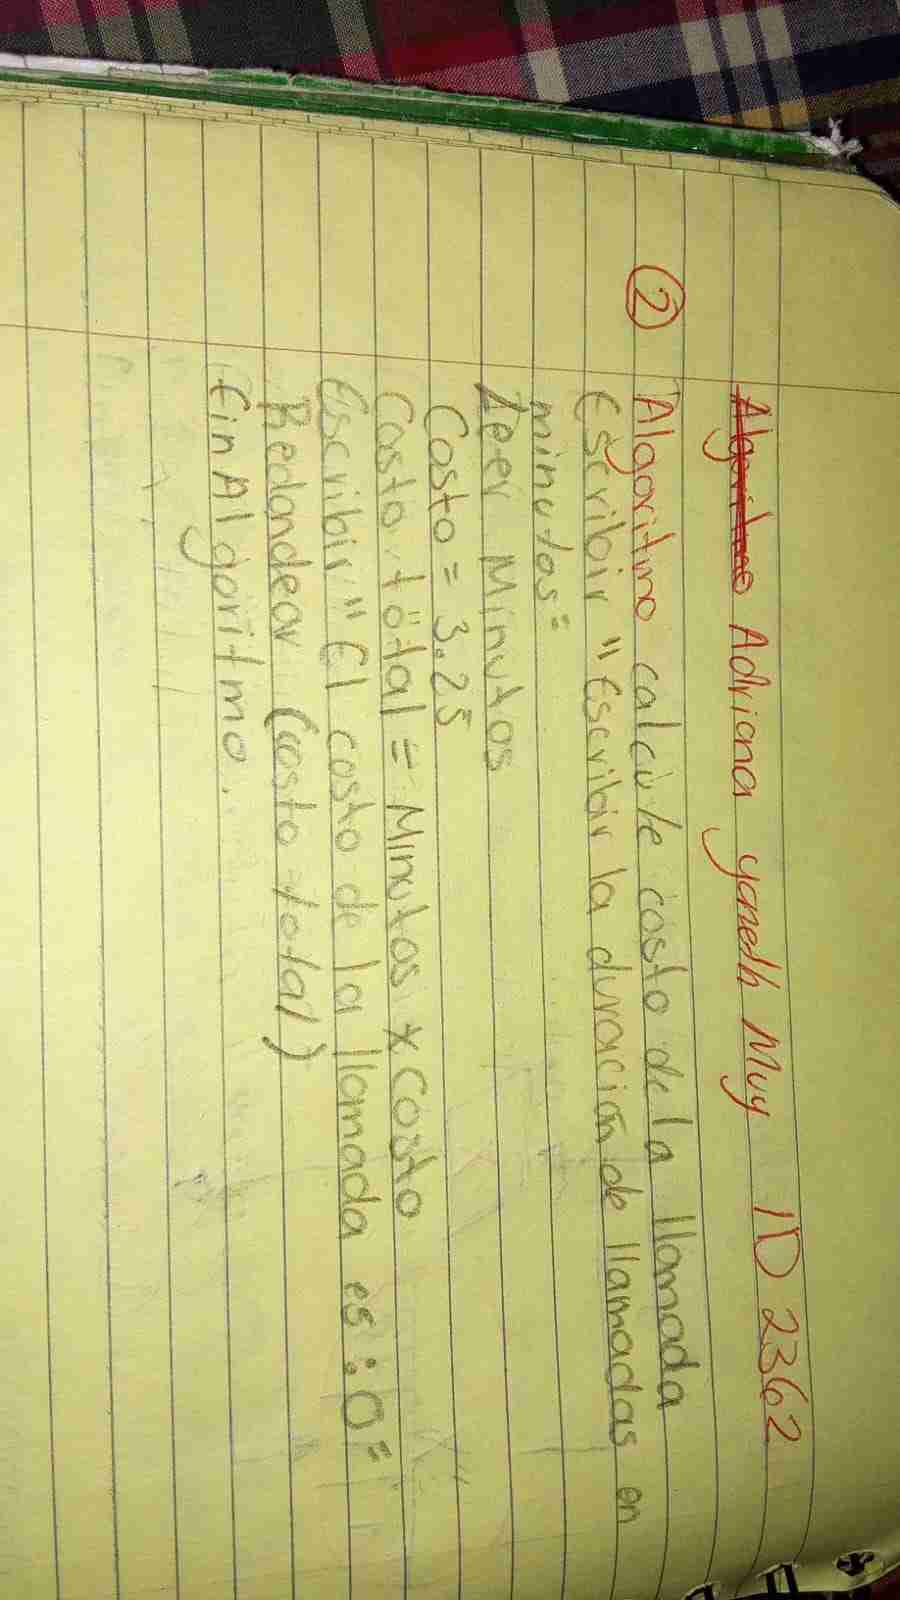 Algoritmo Adriana yaneth Muy ID 2362
② Algoritmo calcule costo de la llamada
Escribir "Escribir la duración de llamadas en
minutos="
Leer Minutos
Costo = 3.25
Costo total = Minutos * Costo
Escribir" El costo de la llamada es: Q="
Redondear (costo total)
Fin Algoritmo.